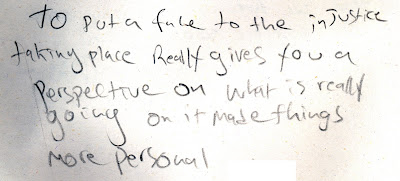 To put a face to the injustice
taking place Really gives you a
perspective on what is really
going on it made things
more personal